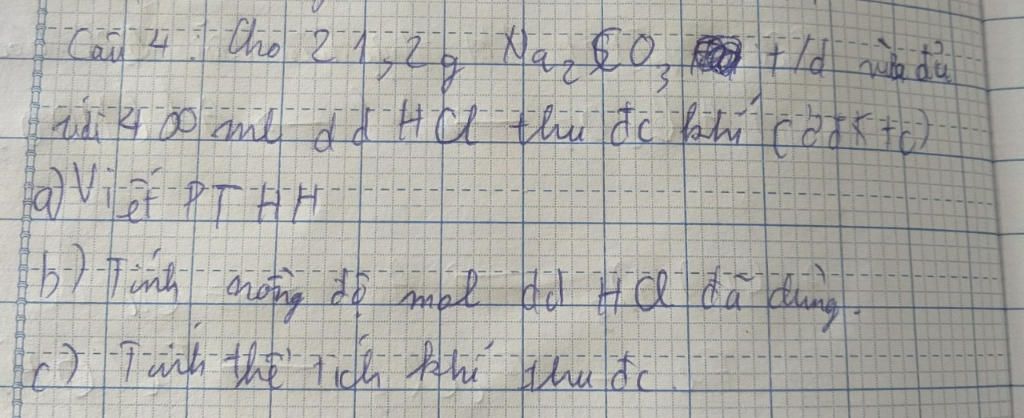 Câu 4: Cho 21,2g Na₂CO₃ t/d vừa đủ
với 400 ml dd HCl thu đc khí (ở đktc)
a) Viết PTHH
b) Tính nồng độ mol dd HCl đã dùng.
c) Tính thể tích khí thu đc.